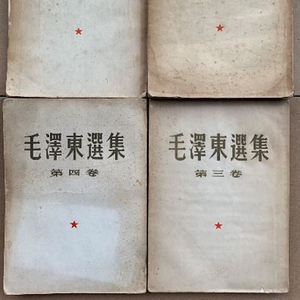 毛澤東選集
第四卷
毛澤東選集
第三卷